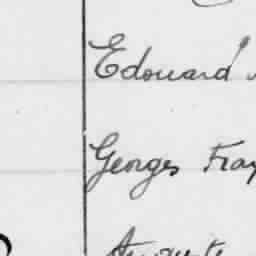 Edouard
Georges Fray
Auguste